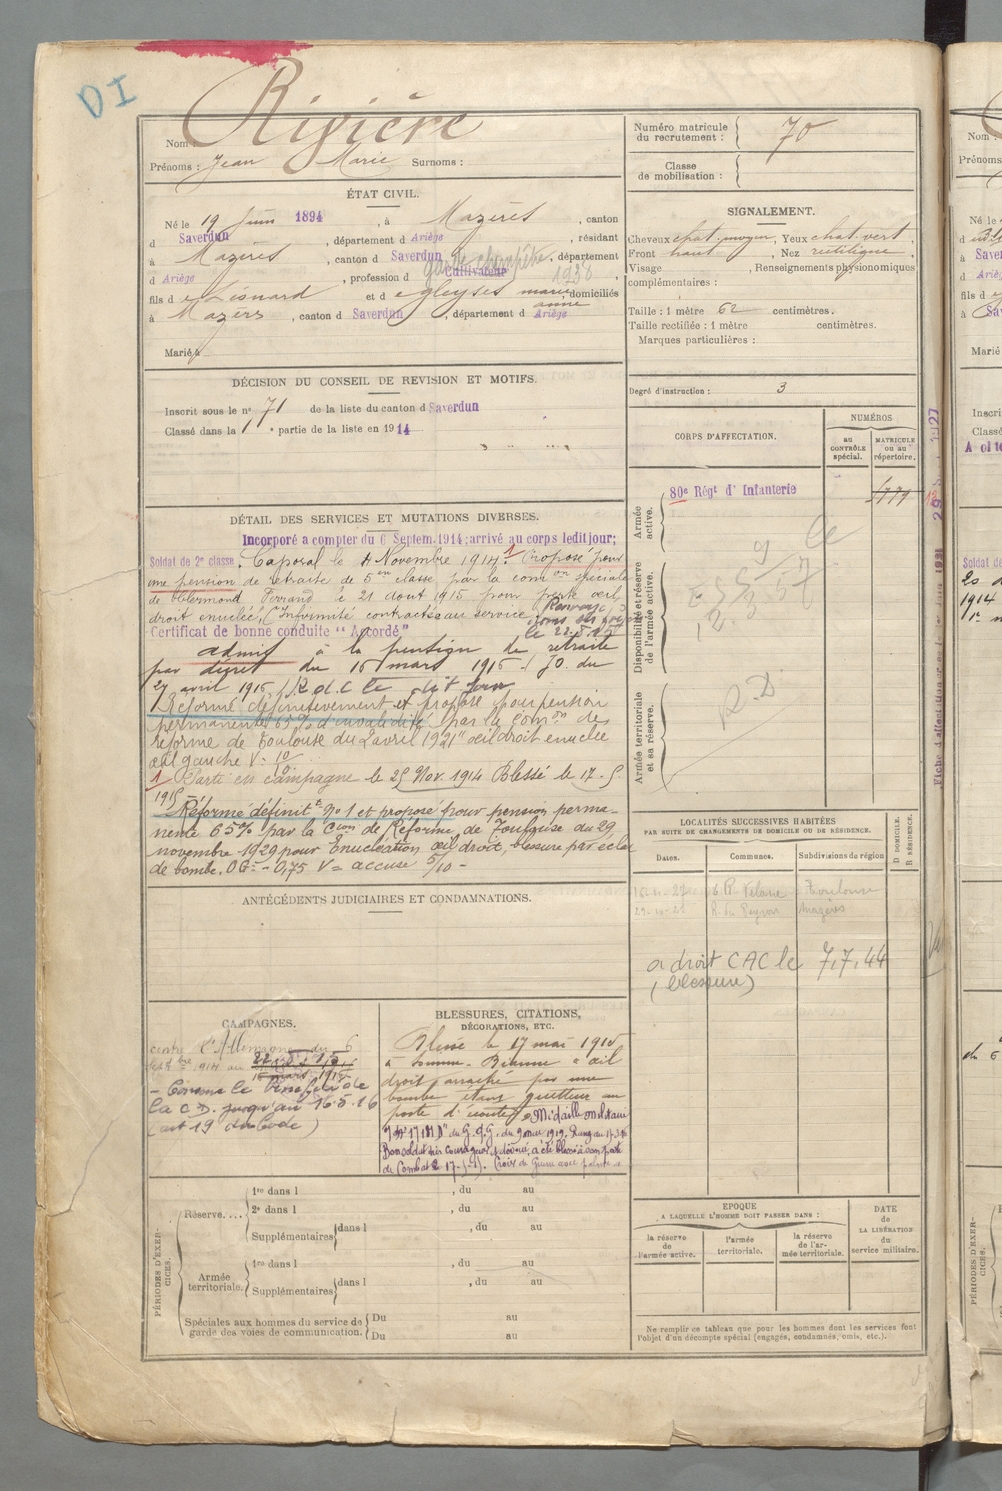 DI
Nom : Rivière
Prénoms : Jean Marie Surnoms :
ÉTAT CIVIL.
Né le 19 Juin 1894, à Mazères, canton
d Saverdun, département d Ariège, résidant
à Mazères, canton d Saverdun, département
d Ariège, profession d Cultivateur garde champêtre 1938
fils de Lisnard et de gleyses marie anne, domiciliés
à Mazères, canton d Saverdun, département d Ariège
Marié à
DÉCISION DU CONSEIL DE REVISION ET MOTIFS.
Inscrit sous le n° 71 de la liste du canton d Saverdun
Classé dans la 1e partie de la liste en 1914
DÉTAIL DES SERVICES ET MUTATIONS DIVERSES.
Incorporé a compter du 6 Septem. 1914; arrivé au corps ledit jour;
Soldat de 2e classe. Caporal le 4 Novembre 1914. 1 Proposé pour
une pension de retraite de 5en classe par la comon spéciale
de Clermond Ferrand le 21 aout 1915 pour perte œil
droit enuclée, (Infirmité contractée au service
le 22.5.15
Certificat de bonne conduite "Accordé"
admis à la pension de retraite
par décret du 16 mars 1916 J.O. du
27 avril 1916 / R d C le dit jour
Réformé définitivement et proposé pour pension
permanente 65% d'invalidité par la Comon de
réforme de Toulouse du 2 avril 1921 "œil droit enuclée
œil gauche V =
1 Parti en campagne le 25 Nov. 1914 Blessé le 17-5-
1915
Réformé définitt n° 1 et proposé pour pension perma-
nente 65% par la Cion de Réforme de Toulouse du 29
novembre 1929 pour Enucléation œil droit, blessure par éclat
de bombe. OG = - 0,75 V = accuse 5/10 -
ANTÉCÉDENTS JUDICIAIRES ET CONDAMNATIONS.
CAMPAGNES.
contre l'Allemagne du 6
Septbre 1914 au 22.5.15
16 mars 1916
- Conserve le bénéfice de
la C D. jusqu'au 16.5.16
(art 19 du Code)
BLESSURES, CITATIONS,
DÉCORATIONS, ETC.
Blessé le 17 mai 1915
à Somme-Bionne "œil
droit arraché par une
bombe étant guetteur au
poste d'écoute". Médaille militaire
du G.Q.G. du 9 mai 1919.
Bon soldat très courageux et dévoué, a été blessé à son poste
de Combat le 17-5-15. Croix de Guerre avec palme
PÉRIODES D'EXER-
CICES.
Réserve....
1re dans l , du au
2e dans l , du au
Supplémentaires dans l , du au
Armée
territoriale.
1re dans l , du au
Supplémentaires dans l , du au
Spéciales aux hommes du service de
garde des voies de communication.
Du au
Du au
Numéro matricule
du recrutement : 70
Classe
de mobilisation :
SIGNALEMENT.
Cheveux chat. moyen, Yeux chat. vert,
Front haut, Nez rectiligne,
Visage , Renseignements physionomiques
complémentaires :
Taille : 1 mètre 62 centimètres.
Taille rectifiée : 1 mètre centimètres.
Marques particulières :
Degré d'instruction : 3
CORPS D'AFFECTATION.
NUMÉROS
au
CONTRÔLE
spécial.
MATRICULE
ou au
répertoire.
Armée
active.
80e Régt d' Infanterie
Disponibilité et réserve
de l'armée active.
Armée territoriale
et sa réserve.
R.D
LOCALITÉS SUCCESSIVES HABITÉES
PAR SUITE DE CHANGEMENTS DE DOMICILE OU DE RÉSIDENCE.
Dates. Communes. Subdivisions de région
D DOMICILE.
R RÉSIDENCE.
Toulouse
Mazères
a droit CAC le 7.7.44
(blessure)
EPOQUE
A LAQUELLE L'HOMME DOIT PASSER DANS :
la réserve
de
l'armée active.
l'armée
territoriale.
la réserve
de l'ar-
mée territoriale.
DATE
de
LA LIBÉRATION
du
service militaire.
Ne remplir ce tableau que pour les hommes dont les services font
l'objet d'un décompte spécial (engagés, condamnés, omis, etc.).